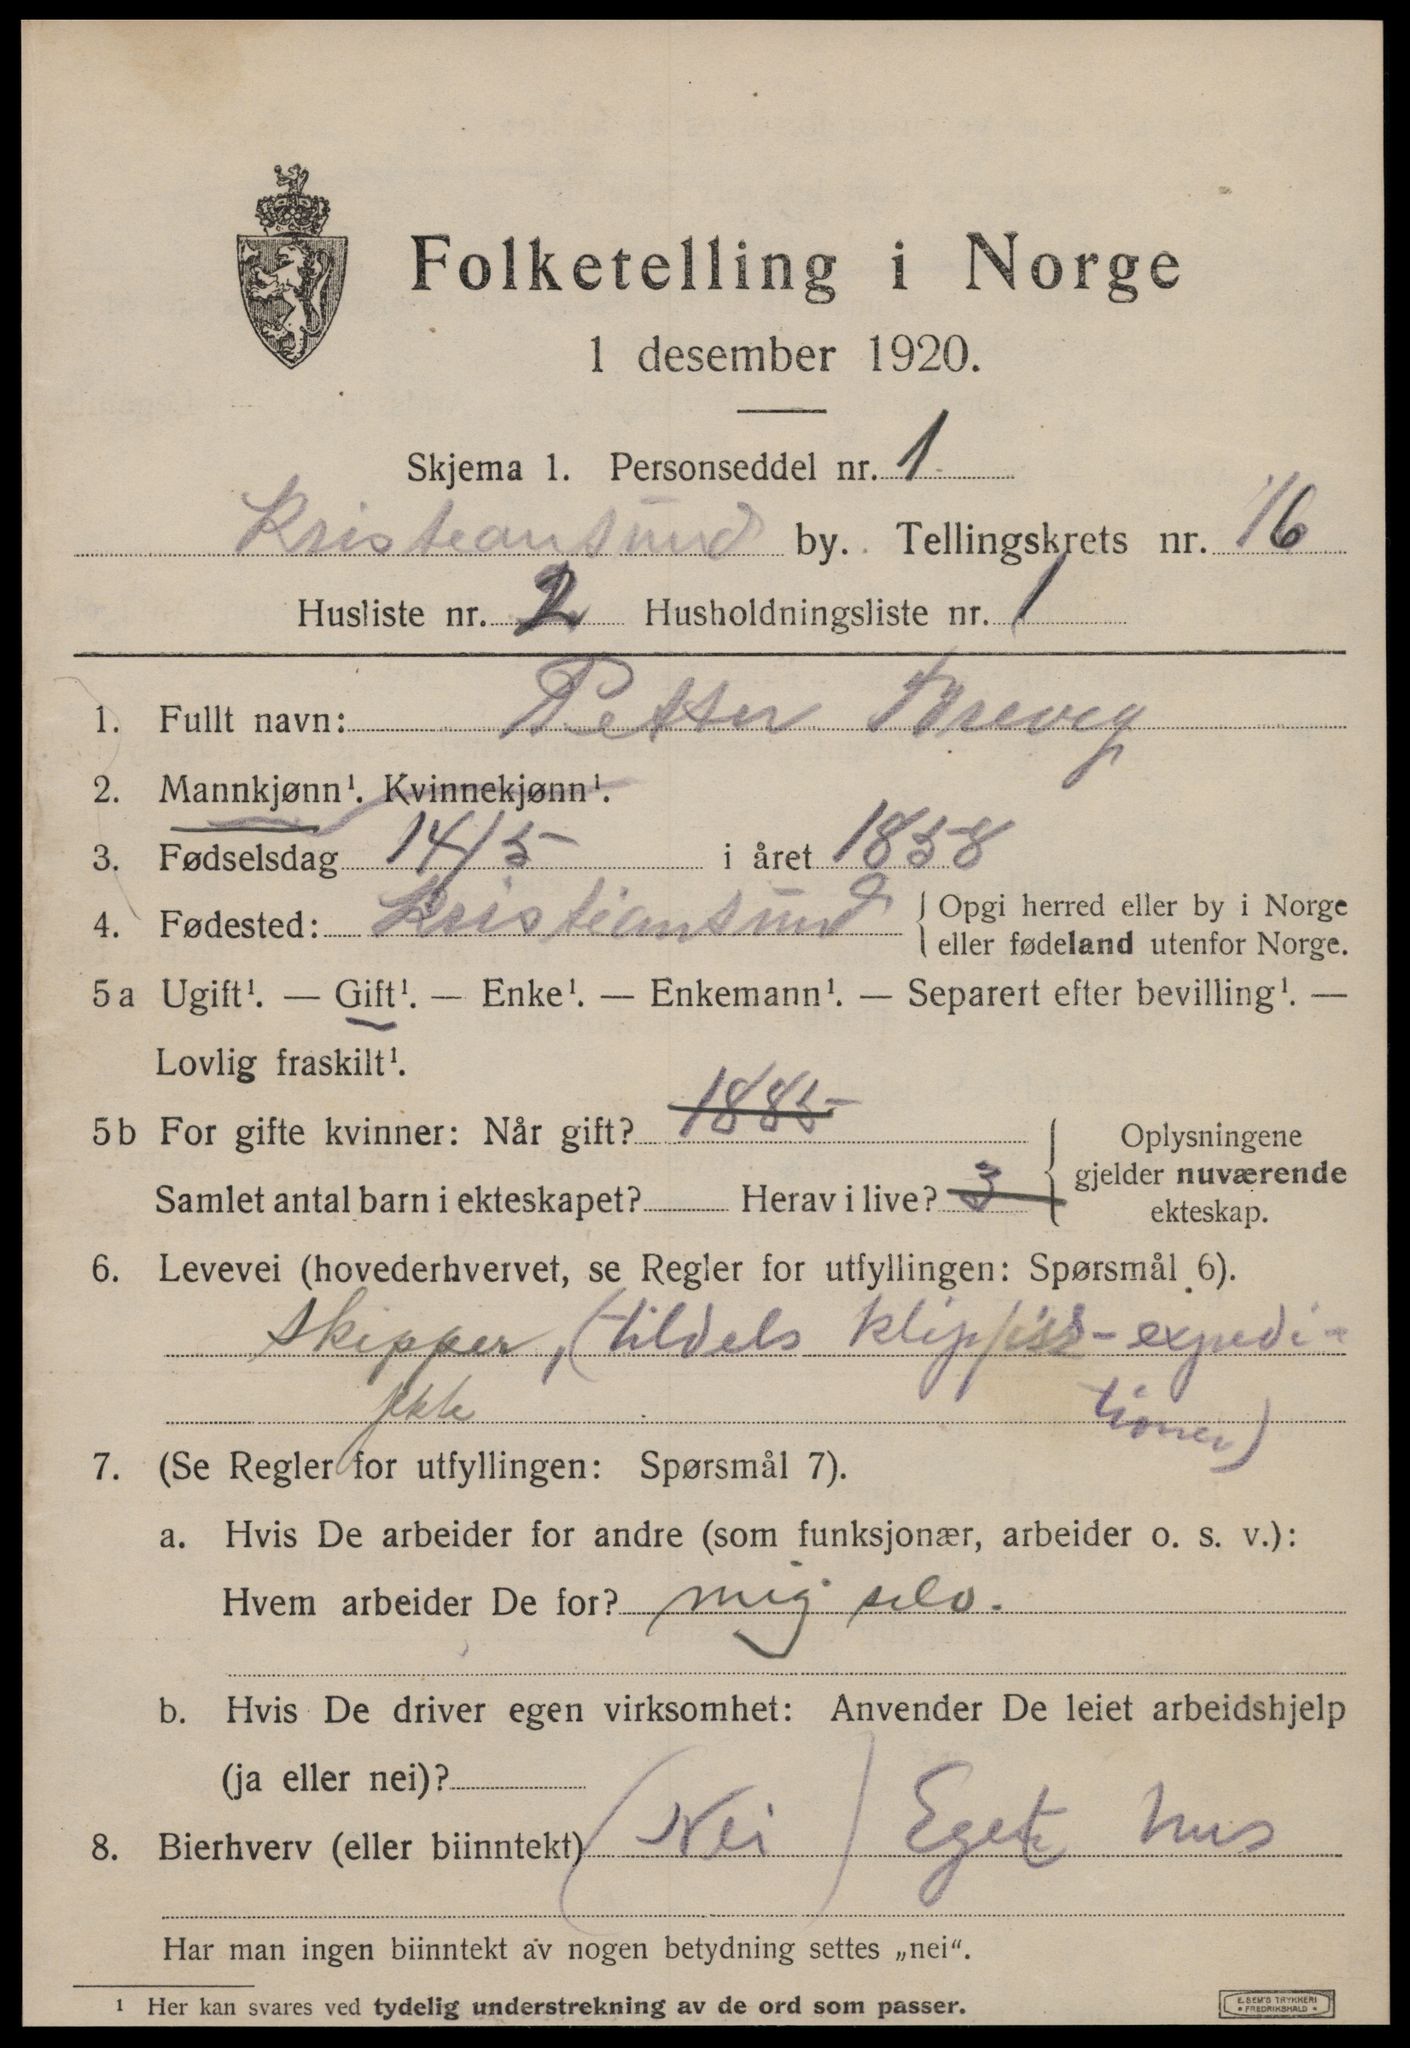 Folketelling i Norge
1 desember 1920.
Skjema 1. Personseddel nr. 1
Kristiansund by. Tellingskrets nr. 16
Husliste nr. 2 Husholdningsliste nr. 1
1. Fullt navn: Petter Brevig
2. Mannkjønn¹. Kvinnekjønn¹.
3. Fødselsdag 14/5 i året 1858
4. Fødested: Kristiansund { Opgi herred eller by i Norge
eller fødeland utenfor Norge.
5a Ugift¹. — Gift¹. — Enke¹. — Enkemann¹. — Separert efter bevilling¹. —
Lovlig fraskilt¹.
5b For gifte kvinner: Når gift? 1885
Samlet antal barn i ekteskapet? Herav i live? 3
{ Oplysningene
gjelder nuværende
ekteskap.
6. Levevei (hovederhvervet, se Regler for utfyllingen: Spørsmål 6).
Skipper, (tildels klipfisk-expedi-
jekt tioner)
7. (Se Regler for utfyllingen: Spørsmål 7).
a. Hvis De arbeider for andre (som funksjonær, arbeider o. s. v.):
Hvem arbeider De for? mig selv.
b. Hvis De driver egen virksomhet: Anvender De leiet arbeidshjelp
(ja eller nei)?
8. Bierhverv (eller biinntekt) (Nei) Eget hus
Har man ingen biinntekt av nogen betydning settes „nei“.
¹ Her kan svares ved tydelig understrekning av de ord som passer.
E. SEM'S TRYKKERI
FREDRIKSHALD